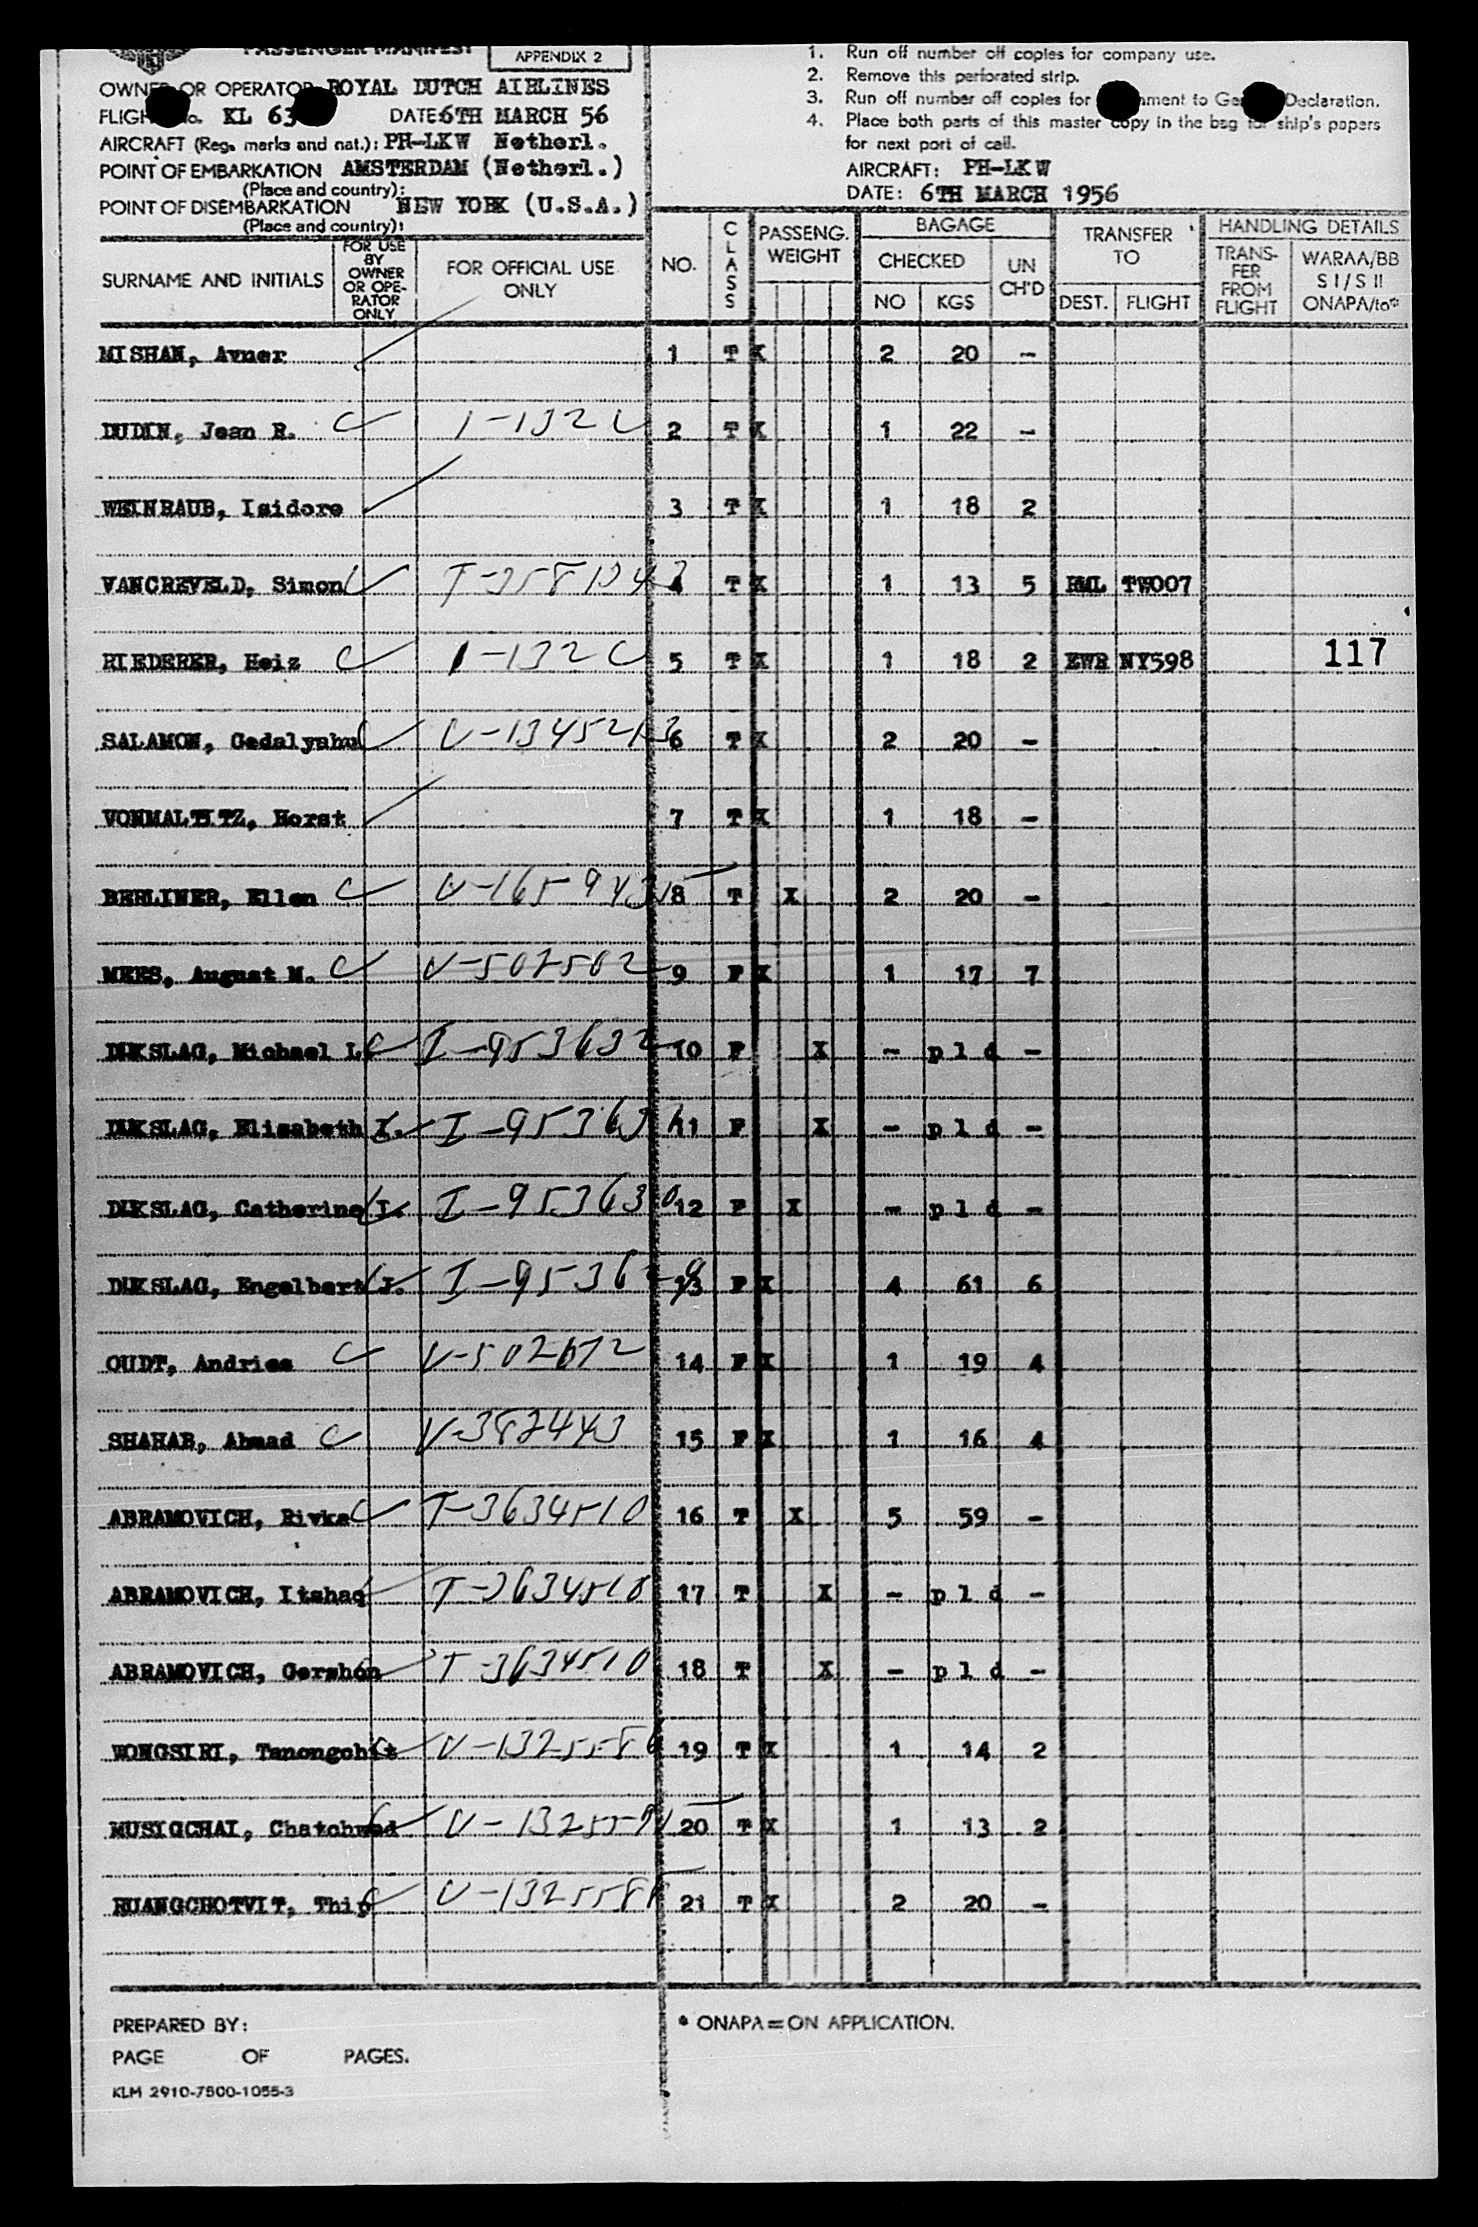 PASSENGER MANIFEST
APPENDIX 2
OWNER OR OPERATOR: ROYAL DUTCH AIRLINES
FLIGHT No. KL 63 DATE: 6TH MARCH 56
AIRCRAFT (Reg. marks and nat.): PH-LKW Netherl.
POINT OF EMBARKATION AMSTERDAM (Netherl.)
(Place and country):
POINT OF DISEMBARKATION NEW YORK (U.S.A.)
(Place and country):
1. Run off number off copies for company use.
2. Remove this perforated strip.
3. Run off number off copies for Declaration.
4. Place both parts of this master copy in the bag for ship's papers
for next port of call.
AIRCRAFT: PH-LKW
DATE: 6TH MARCH 1956
SURNAME AND INITIALS FOR USE BY OWNER OR OPE- RATOR ONLY FOR OFFICIAL USE ONLY NO. CLASS PASSENG. WEIGHT BAGAGE CHECKED NO KGS UN CH'D TRANSFER TO DEST. FLIGHT HANDLING DETAILS TRANS- FER FROM FLIGHT WARAA/BB S I / S II ONAPA/to*
MISHAN, Avner 1 T X 2 20 -
DUDIN, Jean R. I-132 C 2 T X 1 22 -
WEINRAUB, Isidore 3 T X 1 18 2
VANCREVELD, Simon 4 T X 1 13 5 HML TW007
RIEDERER, Heiz I-132 C 5 T X 1 18 2 EWR NY598 117
SALAMON, Gedalyahu V-1345213 6 T X 2 20 -
VONMALTITZ, Horst 7 T X 1 18 -
BERLINER, Ellen 8 T X 2 20 -
MEES, August M. V-507502 9 F X 1 17 7
DIJKSLAG, Michael L. I-953632 10 F X - p l d -
DIJKSLAG, Elisabeth I-95363 11 F X - p l d -
DIJKSLAG, Catherine I. I-953630 12 F X - p l d -
DIJKSLAG, Engelbert J. 13 F X 4 61 6
OUDT, Andries V-502672 14 F X 1 19 4
SHAHAB, Ahmad V-382443 15 F X 1 16 4
ABRAMOVICH, Rivka T-3634510 16 T X 5 59 -
ABRAMOVICH, Itshaq T-3634510 17 T X - p l d -
ABRAMOVICH, Gershon T-3634510 18 T X - p l d -
WONGSIRI, Tanongchit V-1325586 19 T X 1 14 2
MUSIGCHAI, 20 T X 1 13 2
HUANGCHOTVIT, Thip V-1325585 21 T X 2 20 -
PREPARED BY:
PAGE OF PAGES.
KLM 2910-7800-1055-3
* ONAPA = ON APPLICATION.